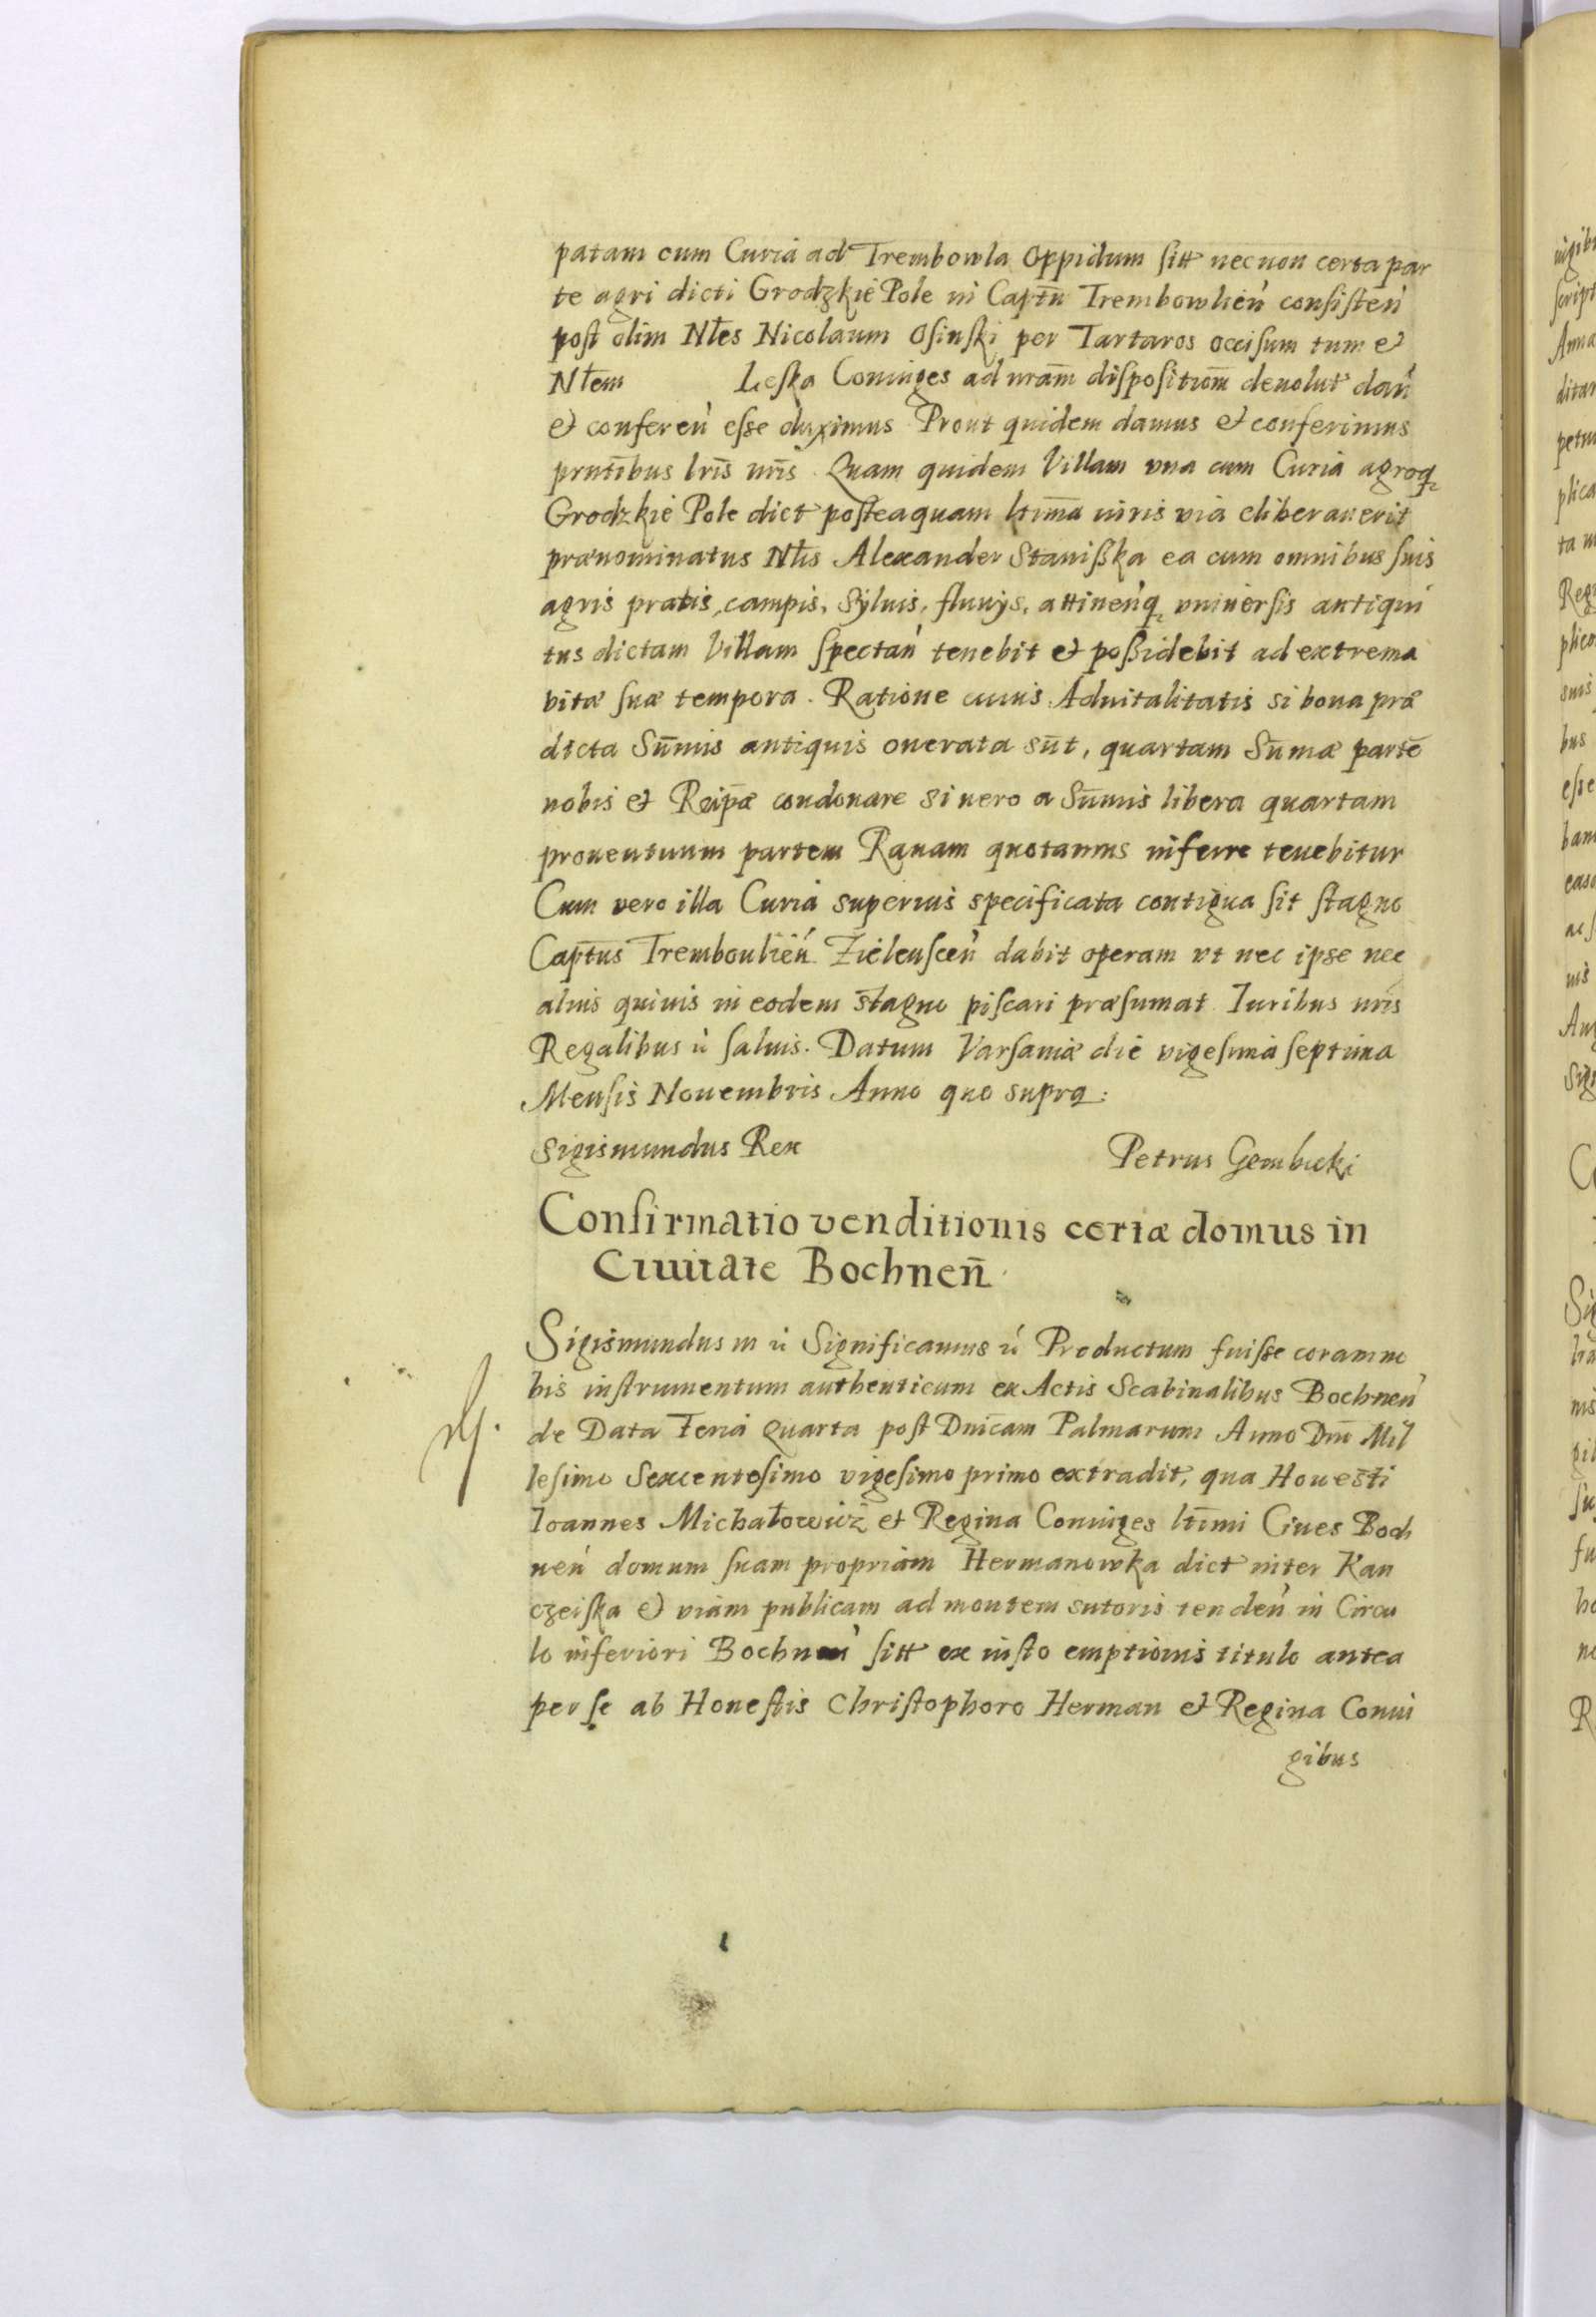 patam cum Curia ad Trembowla Oppidum sitt necnon certa par
te agri dicti Grodzkie Pole in Captū Trembowlień consisteń
post olim Nłes Nicolaum Osinski per Tartaros occisum tum et
Nłem Leska Coniuges ad nram̄ dispositiom̄ deuolut dań
et confereń esse duximus Prout quidem damus et conferimus
prntībus lris̄ nris̄. Quam quidem Villam vna cum Curia agroq
Grodzkie Pole dict posteaquam ltima̅ iuris via eliberauerit
prænominatus Nłis Alexander Stanisska ea cum omnibus suis
agris pratis, campis, syluis, fluuijs, attineńq vniuersis antiqui
tus dictam Villam spectań tenebit et possidebit ad extrema
vitæ suæ tempora. Ratione cuius Aduitalitatis si bona præ
dicta Sūmis antiquis onerata sūt, quartam Sūmæ partē
nobis et Reip̄æ condonare si uero a Sūmis libera quartam
prouentuum partem Rauam quotannis inferre tenebitur
Cum vero illa Curia superius specificata contigua sit stagno
Captūs Trembowlień Zielensceń dabit operam vt nec ipse nec
alius quiuis in eodem stagno piscari præsumat Iuribus nris̄
Regalibus ń saluis. Datum Varsauiæ die vigesima septima
Mensis Nouembris Anno quo supra:
Sigismundus Rex Petrus Gembicki
Confirmatio venditionis certæ domus in
Ciuitate Bochnen̄
Sigismundus III ń Significamus ń Productum fuisse coram no
bis instrumentum authenticum ex Actis Scabinalibus Bochneń
de Data Feria Quarta post Dnicam Palmarum Anno Dni̅ Mil
lesimo Sexcentesimo vigesimo primo extradit, qua Honesti
Ioannes Michałowicz et Regina Coniuges ltīmi Ciues Boch
neń domum suam propriam Hermanowka dict inter Kan
czeiska et viam publicam ad montem sutoris tendeń in Circu
lo inferiori Bochneń sitt ex iusto emptionis titulo antea
per se ab Honestis Christophoro Herman et Regina Coniu
gibus